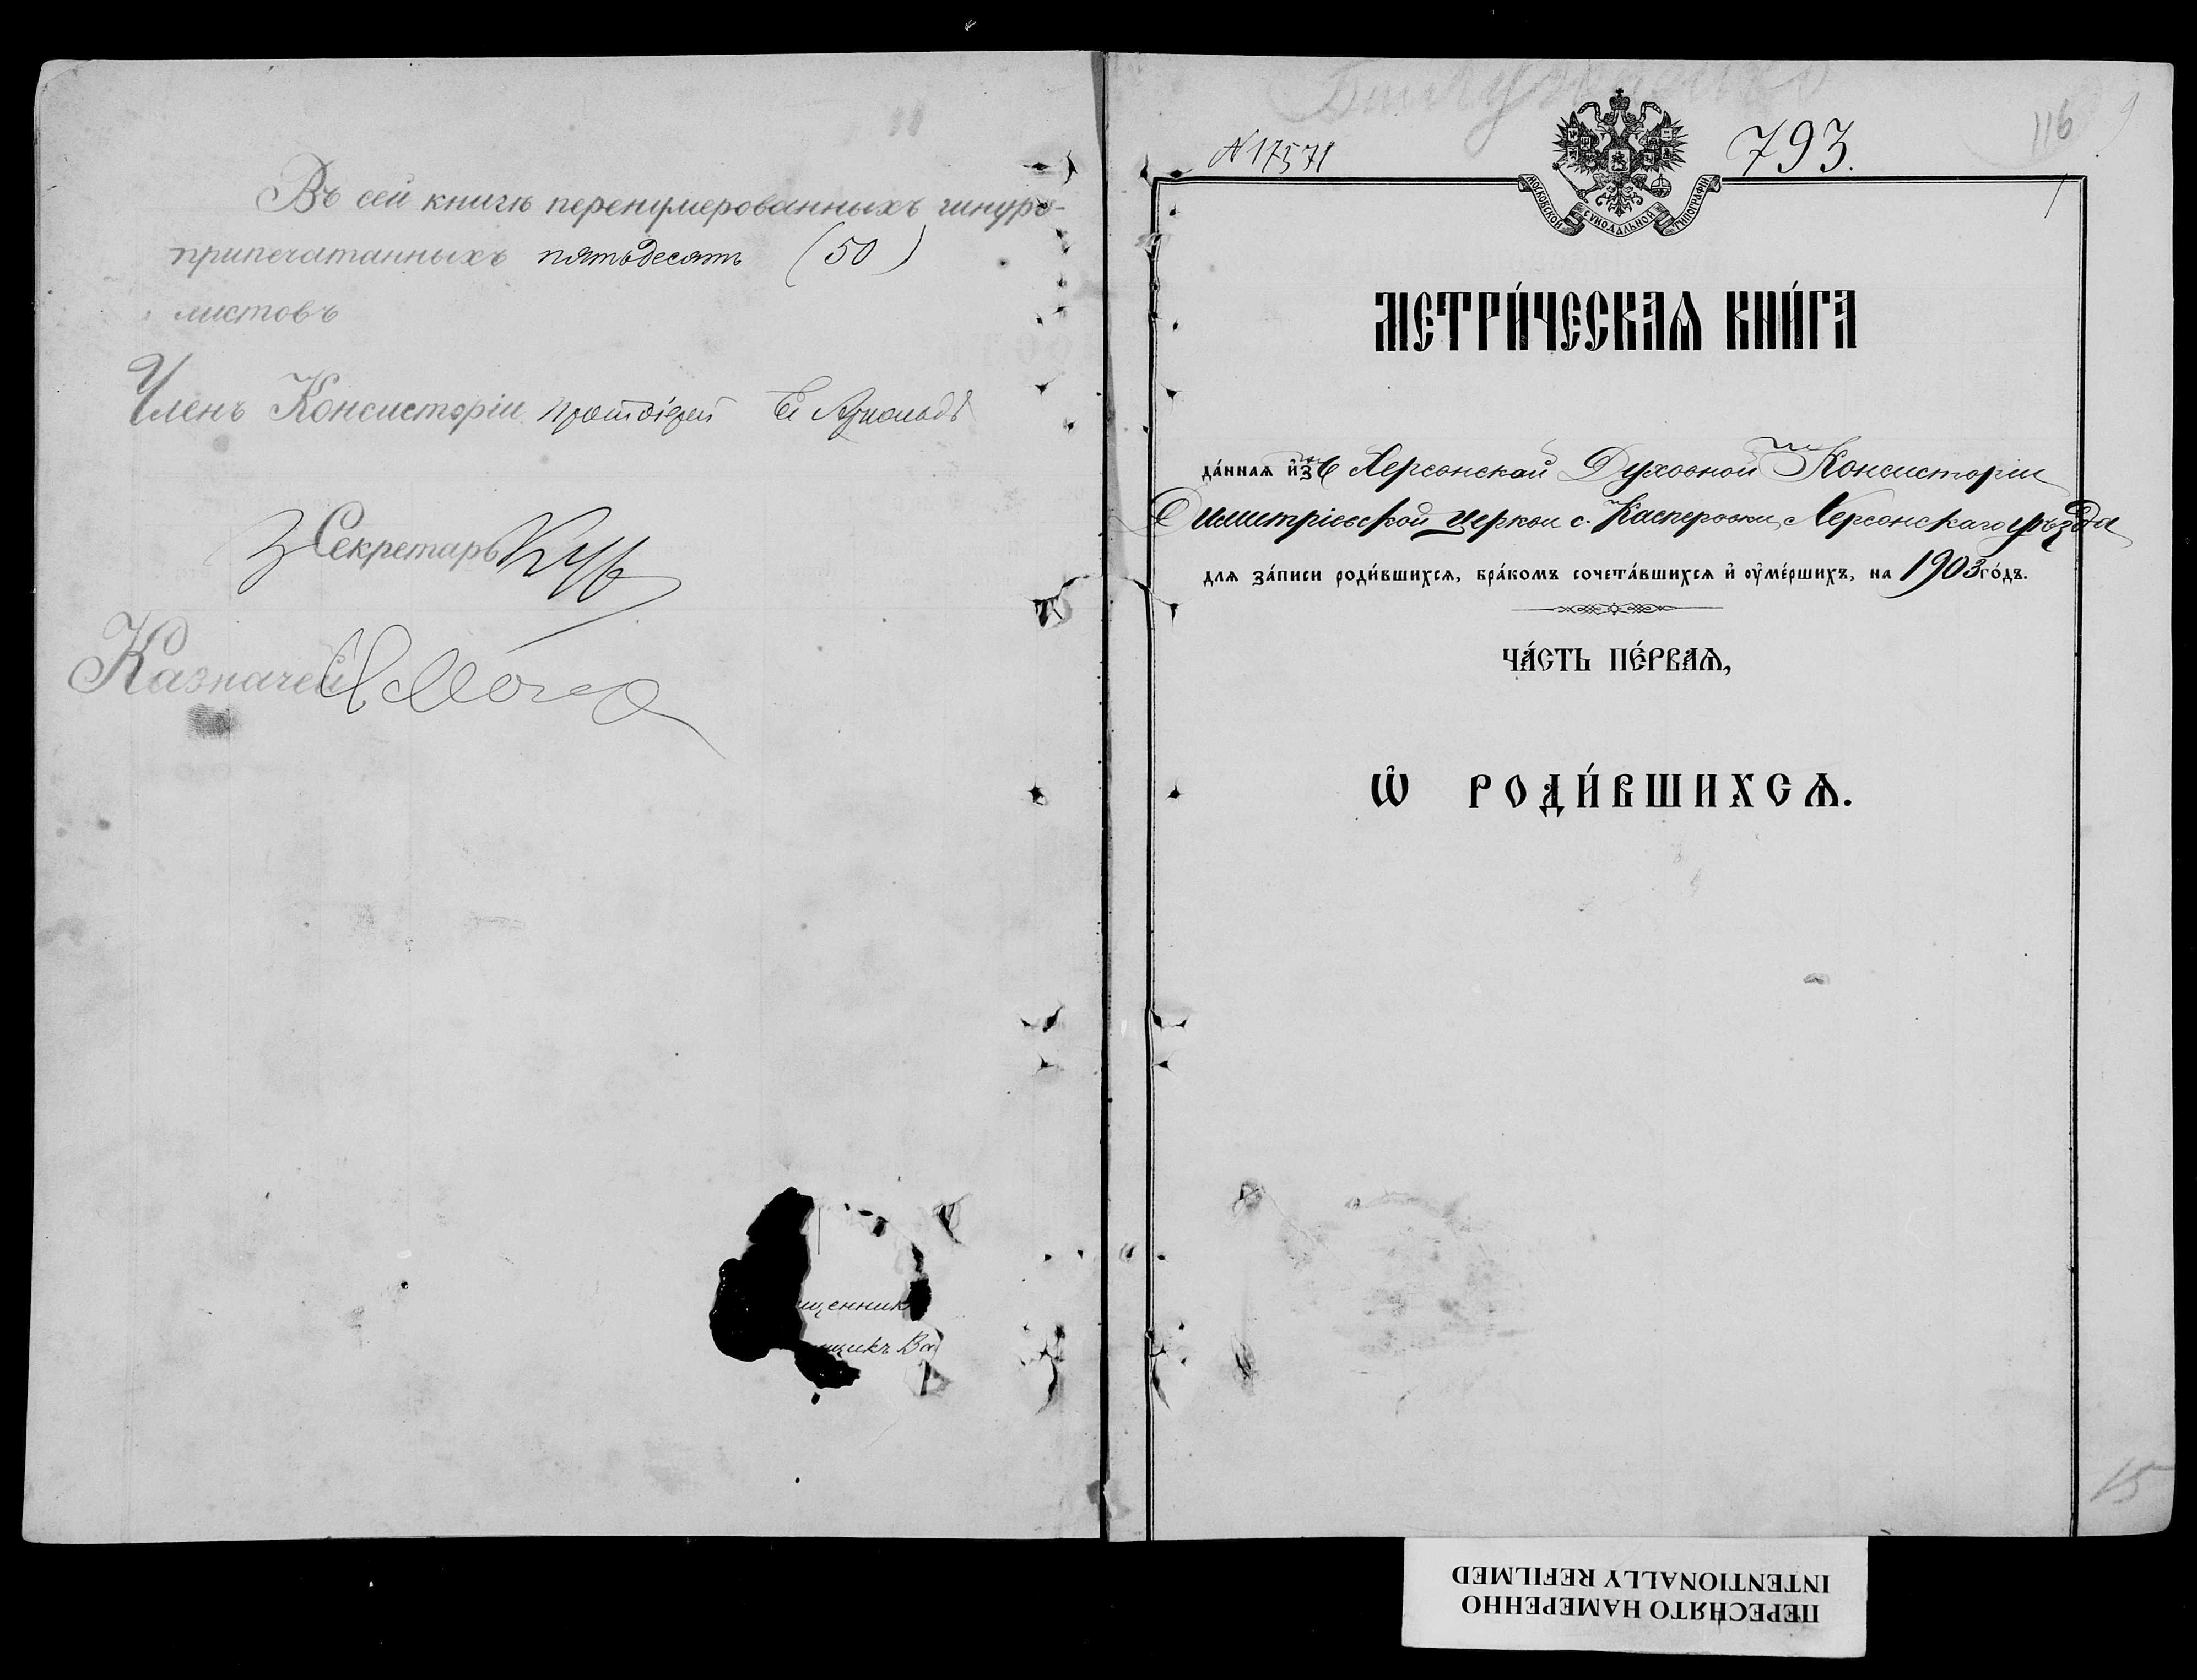 Въ сей книгѣ перенумерованныхъ шнуро-
припечатанныхъ пятьдесятъ (50)
листовъ
Членъ Консисторіи протоіерей
Секретарь
Казначей
щенник
щикъ Ва
N 17571
793.
116
1
МОСКОВСКОЙ СѴНОДАЛЬНОЙ ТИПОГРАФІИ
МЕТРИ́ЧЕСКАѦ КНИ́ГА
да́ннаѧ и҆зъ Херсонской Духовной Консисторіи
Димитріевской церкви с. Касперовки, Херсонскаго уѣзда
длѧ за́писи роди́вшихсѧ, бра́комъ сочета́вшихсѧ и҆ оу҆ме́ршихъ, на 1903 го́дъ.
ЧА́СТЬ ПЕ́РВАѦ,
Ѡ҆ РОДИ́ВШИХСѦ.
15
ПЕРЕСНЯТО НАМЕРЕННО
INTENTIONALLY REFILMED